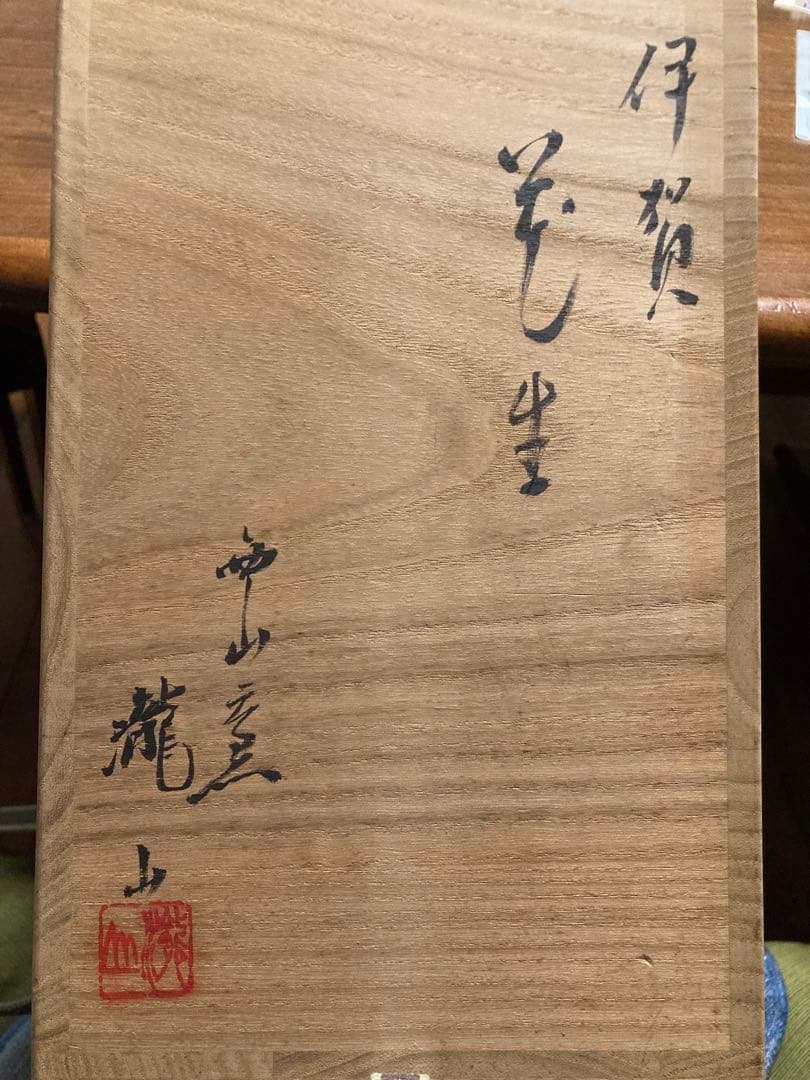 伊賀
花生
山窯
瀧山
瀧山